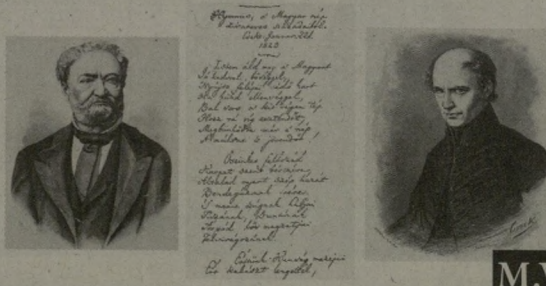 Hymnus, a Magyar nép
zivataros századaiból.
Cseke Januar 22d
1823
Isten áldd meg a Magyart
Jó kedvel, bőséggel,
Nyújts feléje védő kart
Ha küzd ellenséggel,
Bal sors a kit régen tép
Hozz rá víg esztendőt,
Megbűnhődte már e nép
A múltat s jövendőt!
Őseinket felhozád
Kárpát szent bérczére,
Általad nyert szép hazát
Bendegúznak vére
S merre zúgnak habjai
Tiszának, Dunának
Árpád hős magzatjai
Felvirágzának.
Értünk Kunság mezején
Ért kalászt lengettél,
M.V